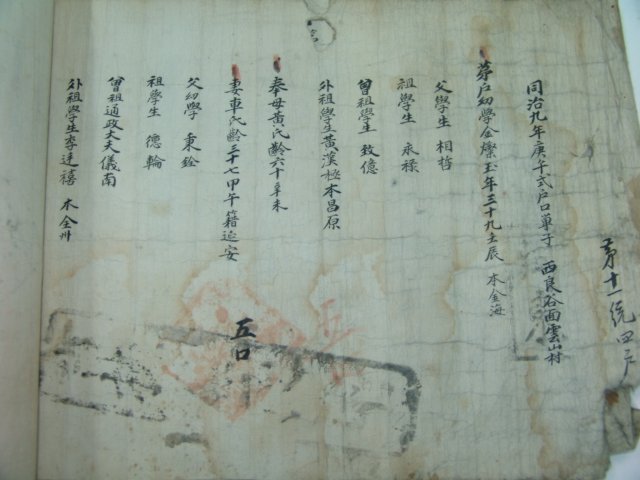 同治九年庚午式戶口單子 西良谷面雲山村
第十一統四戶
第 戶幼學金 玉年三十九壬辰 本金海
父學生 相哲
祖學生 永祿
曾祖學生 致億
外祖學生黃漢極本昌原
奉母黃氏齡六十辛未
妻車氏齡三十七甲午籍延安
父幼學 秉銓
祖學生 德輪
曾祖通政大夫儀南
外祖學生李達禧 本全州
五口